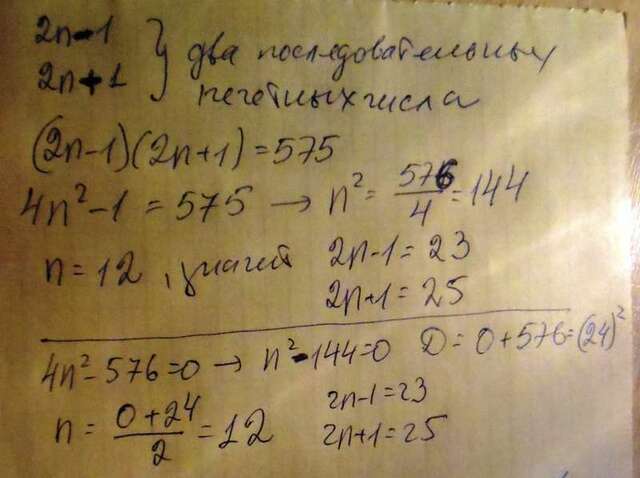 2n-1
2n+1 } два последовательных
нечетных числа
(2n-1)(2n+1)=575
4n²-1=575 → n²= 576/4 =144
n=12, значит 2n-1=23
2n+1=25
4n²-576=0 → n²-144=0 D=0+576=(24)²
n= (0+24)/2 =12 2n-1=23
2n+1=25